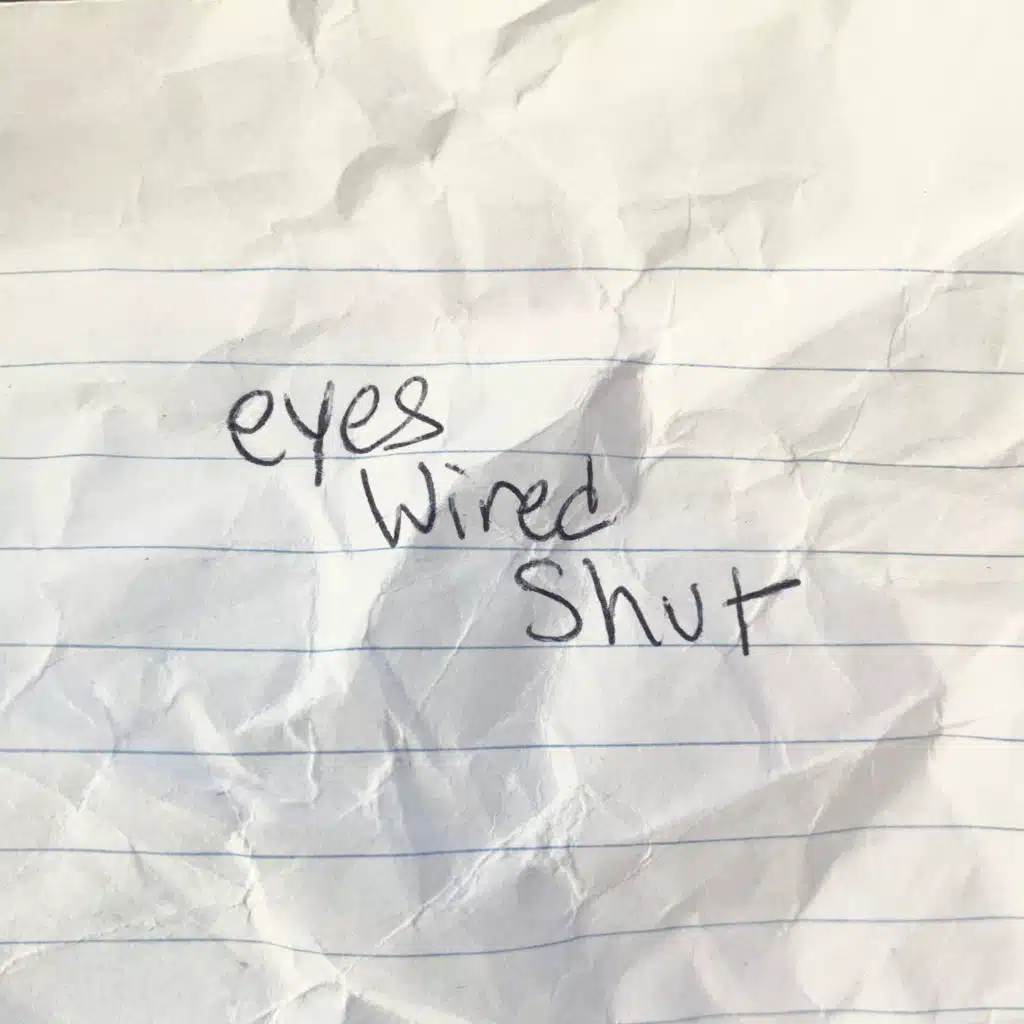 eyes
Wired
Shut